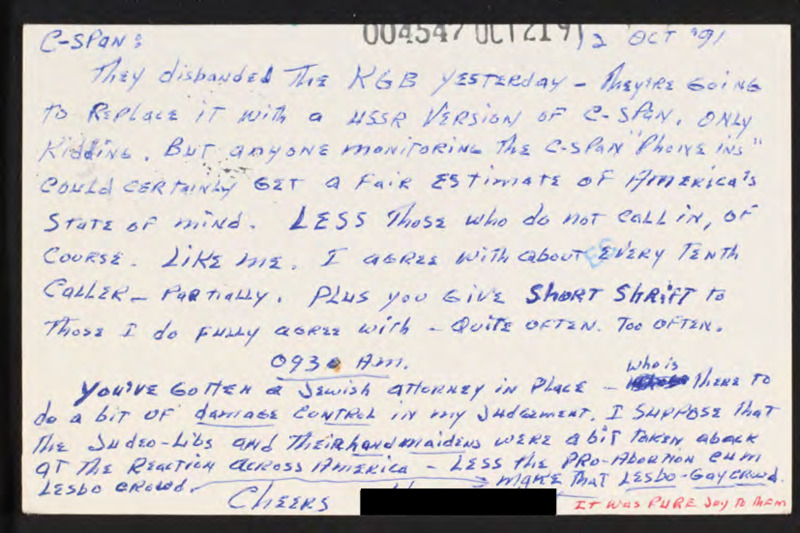 004547 OCT 21 91
C-SPAN: 12 OCT '91
They disbanded the KGB yesterday - They're going
to replace it with a USSR version of C-SPAN. Only
kidding. But anyone monitoring the C-SPAN "Phone ins"
could certainly get a fair estimate of America's
state of mind. Less those who do not call in, of
course. Like me. I agree with about every tenth
caller - partially. Plus you give short shrift to
those I do fully agree with - quite often. Too often.
0930 A.m.
You've gotten a Jewish attorney in place - who is there to
do a bit of damage control in my judgement. I suppose that
the Judeo-Libs and their handmaidens were a bit taken aback
at the reaction across America - less the pro-abortion cum
lesbo crowd. make that lesbo-gay crowd.
Cheers
It was PURE joy to them